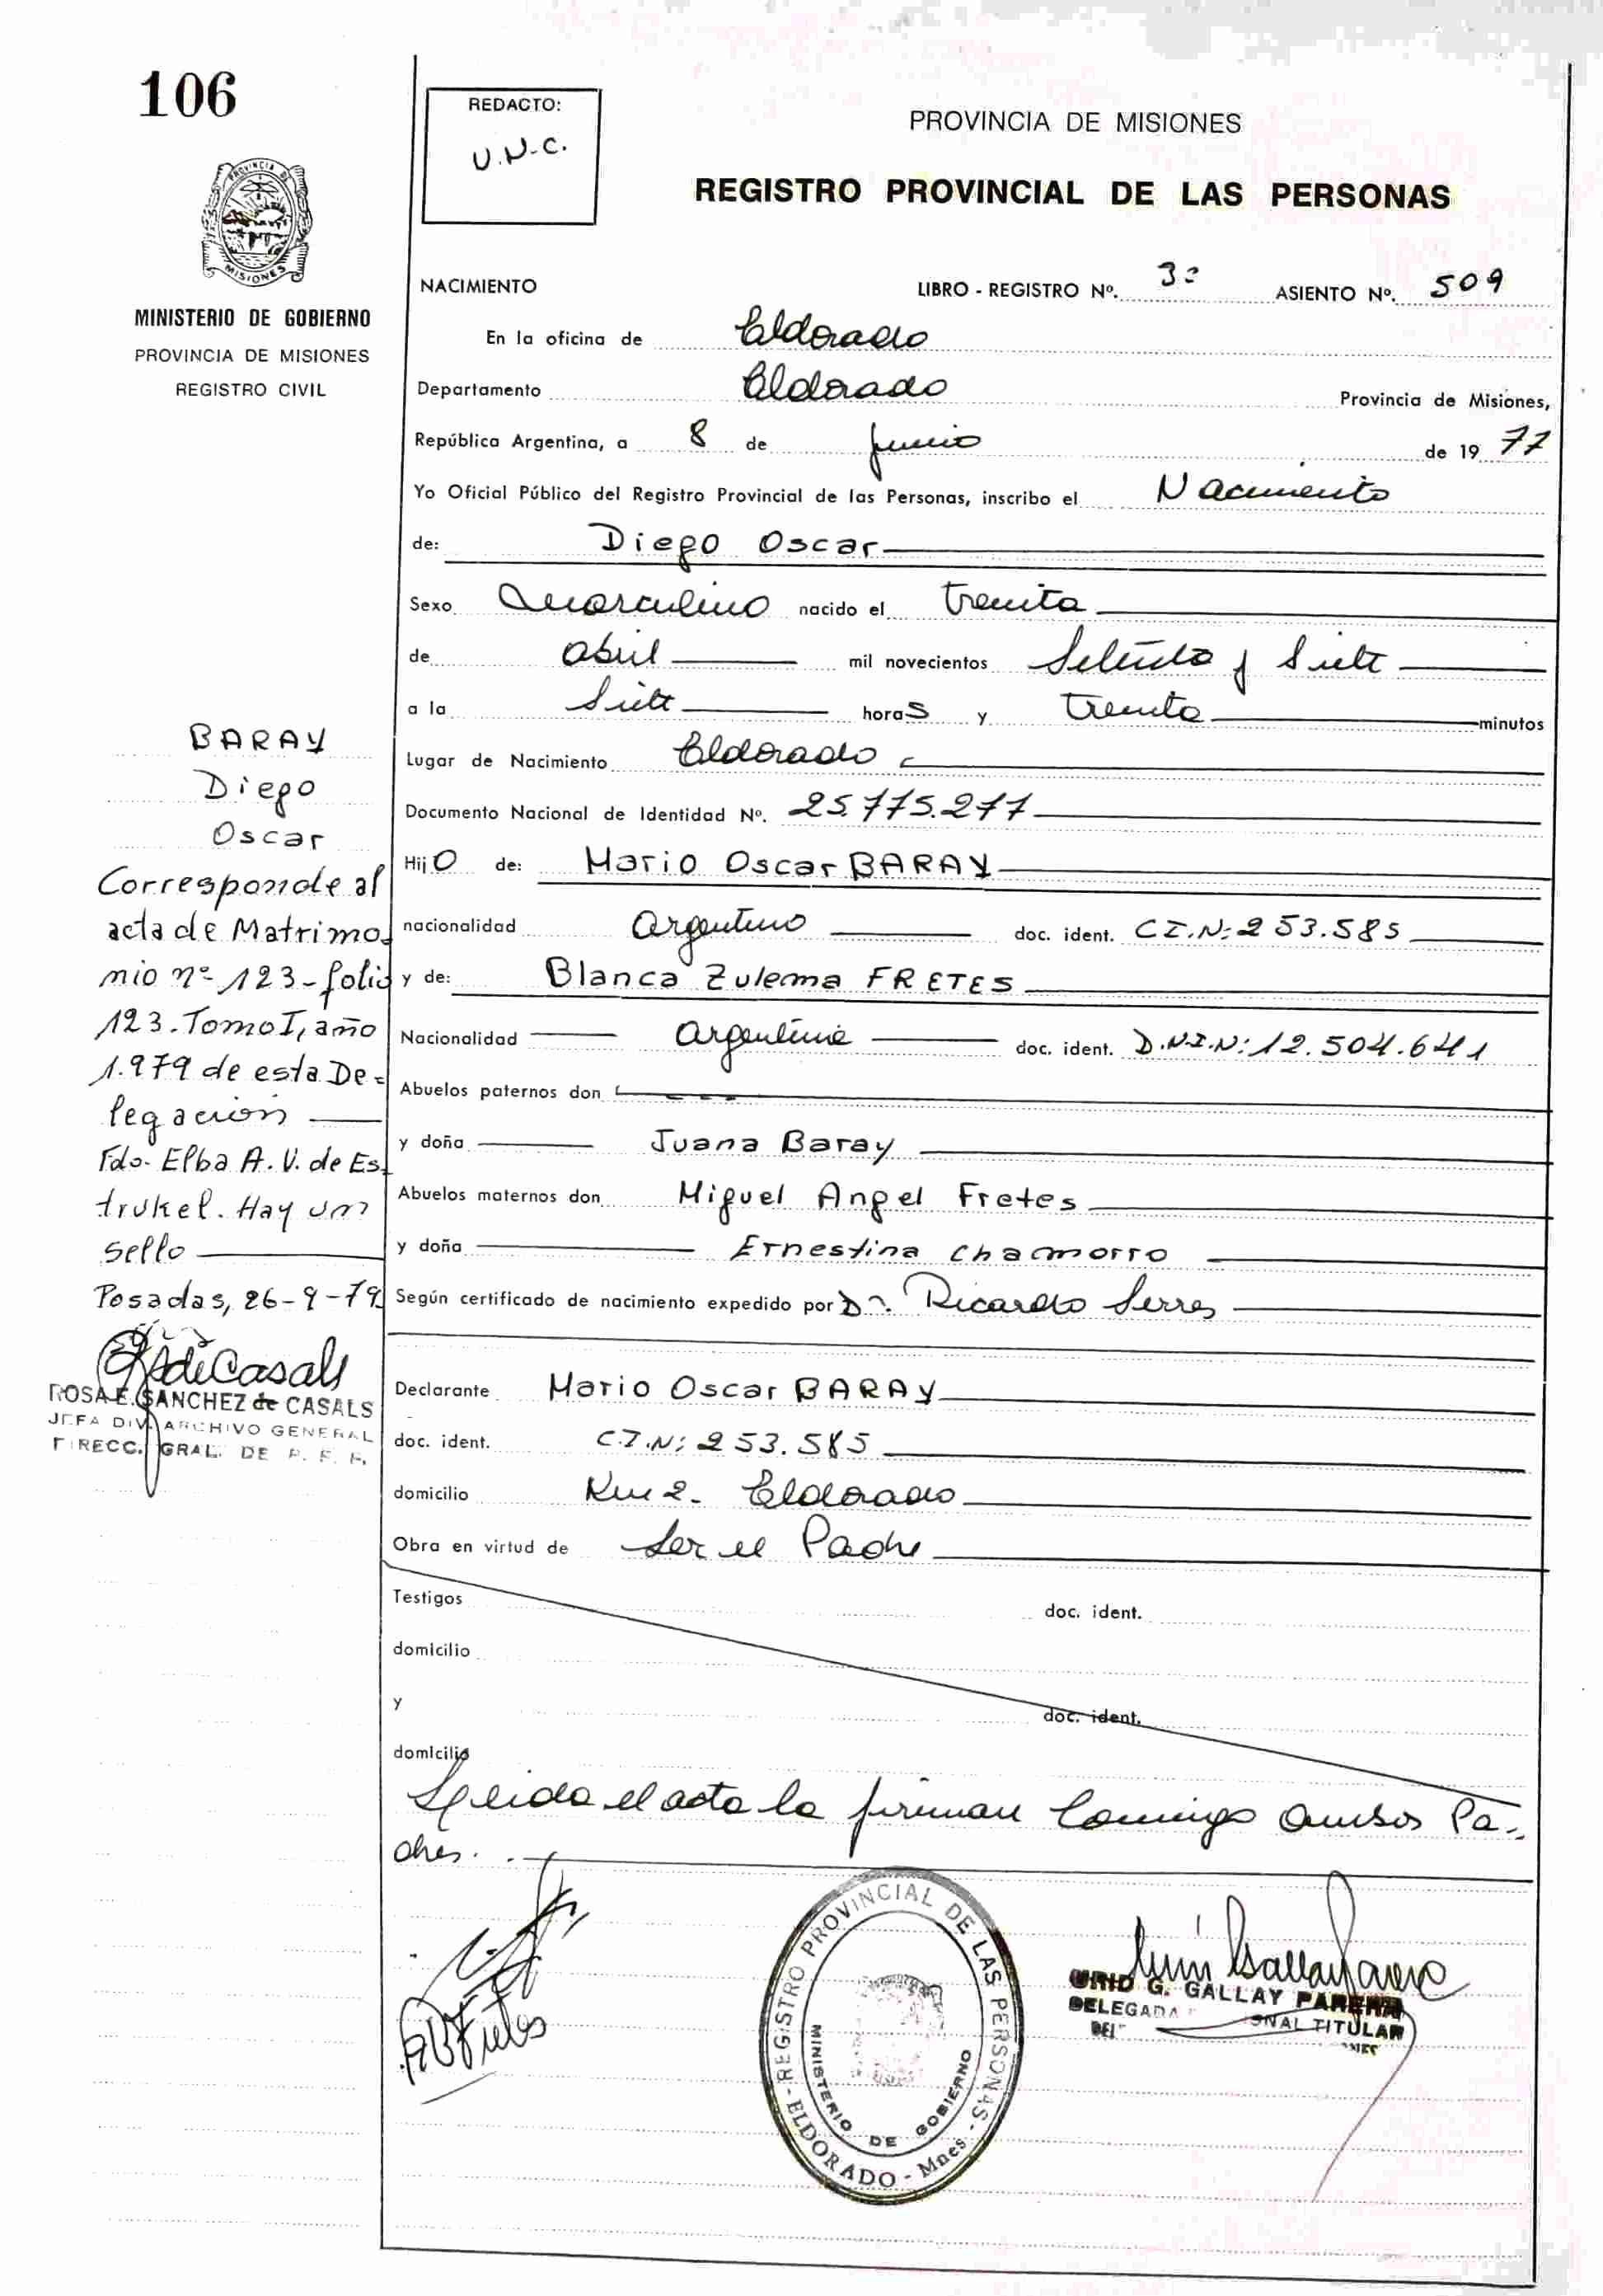 106
REDACTO:
U.N.C.
PROVINCIA DE MISIONES
REGISTRO PROVINCIAL DE LAS PERSONAS
PROVINCIA DE
MISIONES
MINISTERIO DE GOBIERNO
PROVINCIA DE MISIONES
REGISTRO CIVIL
NACIMIENTO LIBRO - REGISTRO Nº. 3º ASIENTO Nº. 509
En la oficina de Eldorado
Departamento Eldorado Provincia de Misiones,
República Argentina, a 8 de junio de 19 77
Yo Oficial Público del Registro Provincial de las Personas, inscribo el Nacimiento
de: Diego Oscar
Sexo Masculino nacido el treinta
de abril mil novecientos Setenta y Siete
a la Siete horas y treinta minutos
Lugar de Nacimiento Eldorado
Documento Nacional de Identidad Nº. 25.775.277
Hijo de: Mario Oscar BARAY
nacionalidad Argentino doc. ident. C.I.N: 253.585
y de: Blanca Zulema FRETES
Nacionalidad argentina doc. ident. D.N.I.N: 12.504.641
Abuelos paternos don
y doña Juana Baray
Abuelos maternos don Miguel Angel Fretes
y doña Ernestina Chamorro
Según certificado de nacimiento expedido por Dr. Ricardo Serres
Declarante Mario Oscar BARAY
doc. ident. C.I.N: 253.585
domicilio Km 2. Eldorado
Obra en virtud de ser el Padre
Testigos doc. ident.
domicilio
y doc. ident.
domicilio
Leida el acta la firman Conmigo Ambos Pa-
dres.
BARAY
Diego
Oscar
Corresponde al
acta de Matrimo
nio nº 123-folio
123. Tomo I, año
1.979 de esta De=
legación
Fdo. Elba A. V. de Es
trukel. Hay un
sello
Posadas, 26-9-79
ROSA E. SANCHEZ de CASALS
JEFA DIV. ARCHIVO GENERAL
DIRECC. GRAL. DE
REGISTRO PROVINCIAL DE LAS PERSONAS
MINISTERIO DE GOBIERNO
ELDORADO - Mnes -
G. GALLAY PARERA
DELEGADA
TITULAR